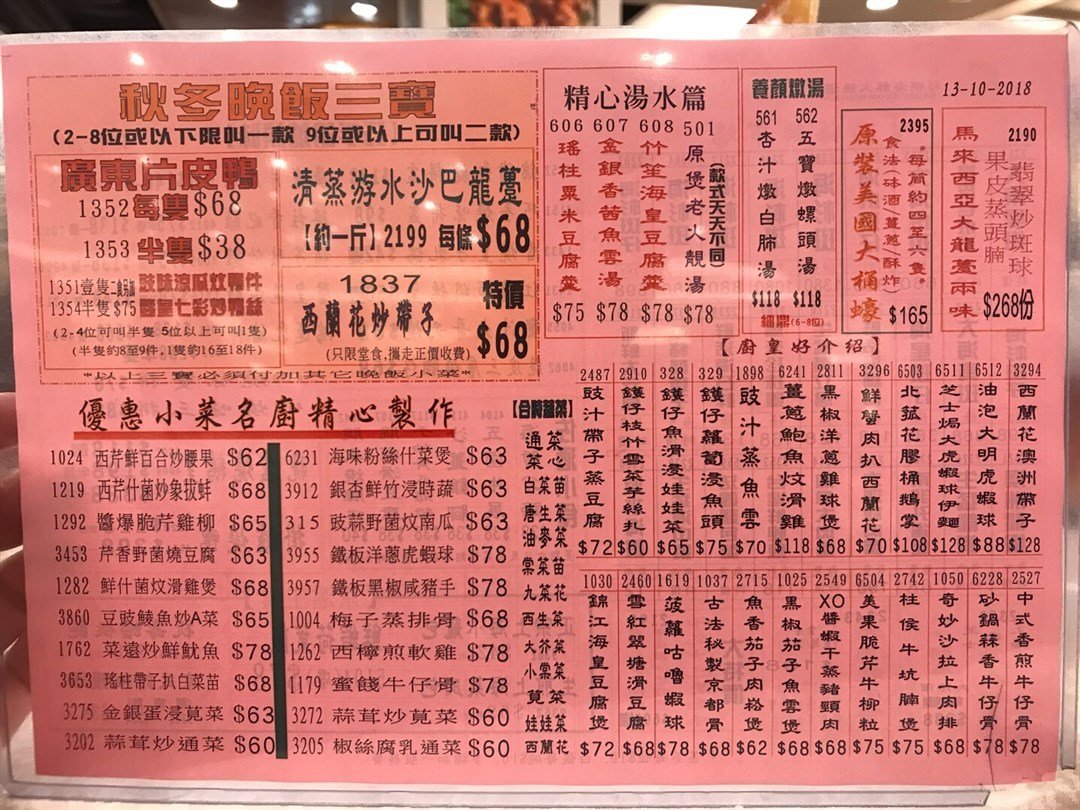 秋冬晚飯三寶
(2-8位或以下限叫一款 9位或以上可叫二款)
廣東片皮鴨
1352每隻$68
1353 半隻$38
1351壹隻
1354半隻 $75
(2-4位可叫半隻 5位以上可叫1隻)
(半隻約8至9件,1隻約16至18件)
清蒸游水沙巴龍躉
【約一斤】2199 每條$68
1837
西蘭花炒帶子
特價
$68
(只限堂食,攜走正價收費)
*以上三寶必須付加其它晚飯小菜*
精心湯水篇
606 瑤柱粟米豆腐羹 $75
607 金銀香茜魚雲湯 $78
608 竹笙海皇豆腐羹 $78
501 原煲老火靚湯 (款式天天不同) $78
養顏燉湯
561 杏汁燉白肺湯 $118
562 五寶燉螺頭湯 $118
細鼎(6-8位)
13-10-2018
2395
原裝美國大桶蠔
*每筒約四至六隻*
食法(砵酒/薑蔥/酥炸)
$165
2190
馬來西亞大龍躉兩味
翡翠炒斑球
果皮蒸頭腩
$268份
優惠小菜名廚精心製作
1024 西芹鮮百合炒腰果 $62
1219 西芹什菌炒象拔蚌 $68
1292 醬爆脆芹雞柳 $65
3453 芹香野菌燒豆腐 $63
1282 鮮什菌炆滑雞煲 $68
3860 豆豉鯪魚炒A菜 $65
1762 菜遠炒鮮魷魚 $78
3653 瑤柱帶子扒白菜苗 $68
3275 金銀蛋浸莧菜 $63
3202 蒜茸炒通菜 $60
6231 海味粉絲什菜煲 $63
3912 銀杏鮮竹浸時蔬 $63
315 豉蒜野菌炆南瓜 $63
3955 鐵板洋蔥虎蝦球 $78
3957 鐵板黑椒咸豬手 $78
1004 梅子蒸排骨 $68
1262 西檸煎軟雞 $78
1179 蜜餞牛仔骨 $78
3272 蒜茸炒莧菜 $60
3205 椒絲腐乳通菜 $60
通菜 菜心
白菜苗
唐生菜
油麥菜
棠菜苗
九菜花
西生菜
大芥菜
小棠菜
莧菜
娃娃菜
西蘭花
【廚皇好介紹】
2487 豉汁帶子蒸豆腐 $72
2910 鑊仔枝竹雪菜芋絲扎 $60
328 鑊仔魚滑浸娃娃菜 $65
329 鑊仔蘿蔔浸魚頭 $75
1898 豉汁蒸魚雲 $70
6241 薑蔥鮑魚炆滑雞 $118
2811 黑椒洋蔥雞球煲 $68
3296 鮮蟹肉扒西蘭花 $70
6503 北菇花膠桶鵝掌 $108
6511 芝士焗大虎蝦球伊麵 $128
6512 油泡大明虎蝦球 $88
3294 西蘭花澳洲帶子 $128
1030 錦江海皇豆腐煲 $72
2460 雪紅翠塘滑豆腐 $68
1619 菠蘿咕嚕蝦球 $78
1037 古法秘製京都骨 $68
2715 魚香茄子肉崧煲 $62
1025 黑椒茄子魚雲煲 $68
2549 XO醬蝦干蒸豬頸肉 $68
6504 美果脆芹牛柳粒 $75
2742 柱侯牛坑腩煲 $75
1050 奇妙沙拉上肉排 $68
6228 砂鍋蒜香牛仔骨 $78
2527 中式香煎牛仔骨 $78